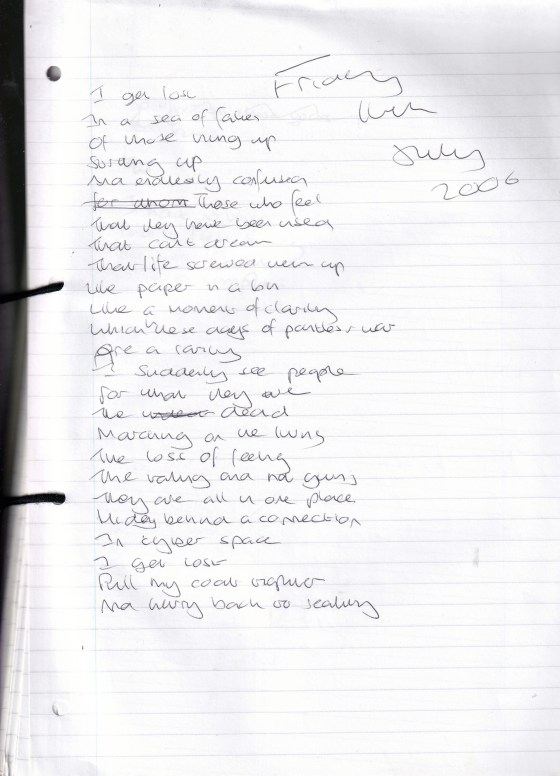 Friday
July
2006
I get lost
In a sea of faces
Of those hung up
Strung up
And endlessly confused
for whom Those who feel
That they have been used
That can't dream
That life screwed them up
Like paper in a bin
Like a moment of clarity
Which these days of parties + war
Are a rarity
I Suddenly see people
For what they are
The dead
Marching on the living
The loss of feeling
The taking and not giving
They are all in one place
Hidey behind a connection
In cyber space
I get lost
Pull my coat tighter
And hurry back to reality